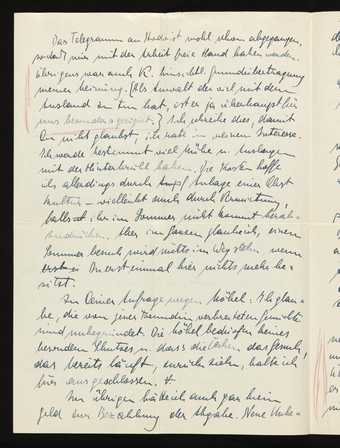 Das Telegramm an Hodo ist wohl schon abgegangen,
sodaß wir mit der Arbeit freie Hand haben werden.
Übrigens war auch K. hinsichtl. Grundübertragung
meiner Meinung. (Als Anwalt der viel mit dem
Ausland zu tun hat, ist er ja überhaupt für
uns besonders geeignet.) Ich schreibe dies, damit
Du nicht glaubst, ich rate in meinem Interesse.
Ich werde bestimmt viel Mühe u. Auslagen
mit der haben. Die Kosten hoffe
ich allerdings durch Anlage einer Obst
kultur – vielleicht auch durch Vermietung,
falls ihr im Sommer nicht kommt herab-
zumindern. Aber im ganzen glaube ich, einem
Sommer besuch wird nichts im Weg stehen wenn
erst Du erst einmal hier nichts mehr be-
sitzt.
Zu Deiner Anfrage wegen Möbel: Ich glau-
be, die von jener Freundin verbreiteten Gerüchte
sind unbegründet. Die Möbel bedürfen keines
besonderen Schutzes u. dass das Gesuch,
das bereits läuft, zurückziehen, halte ich
für ausgeschlossen.
Im übrigen hätte ich auch gar kein
Geld zur Bezahlung der Abgabe. Neue